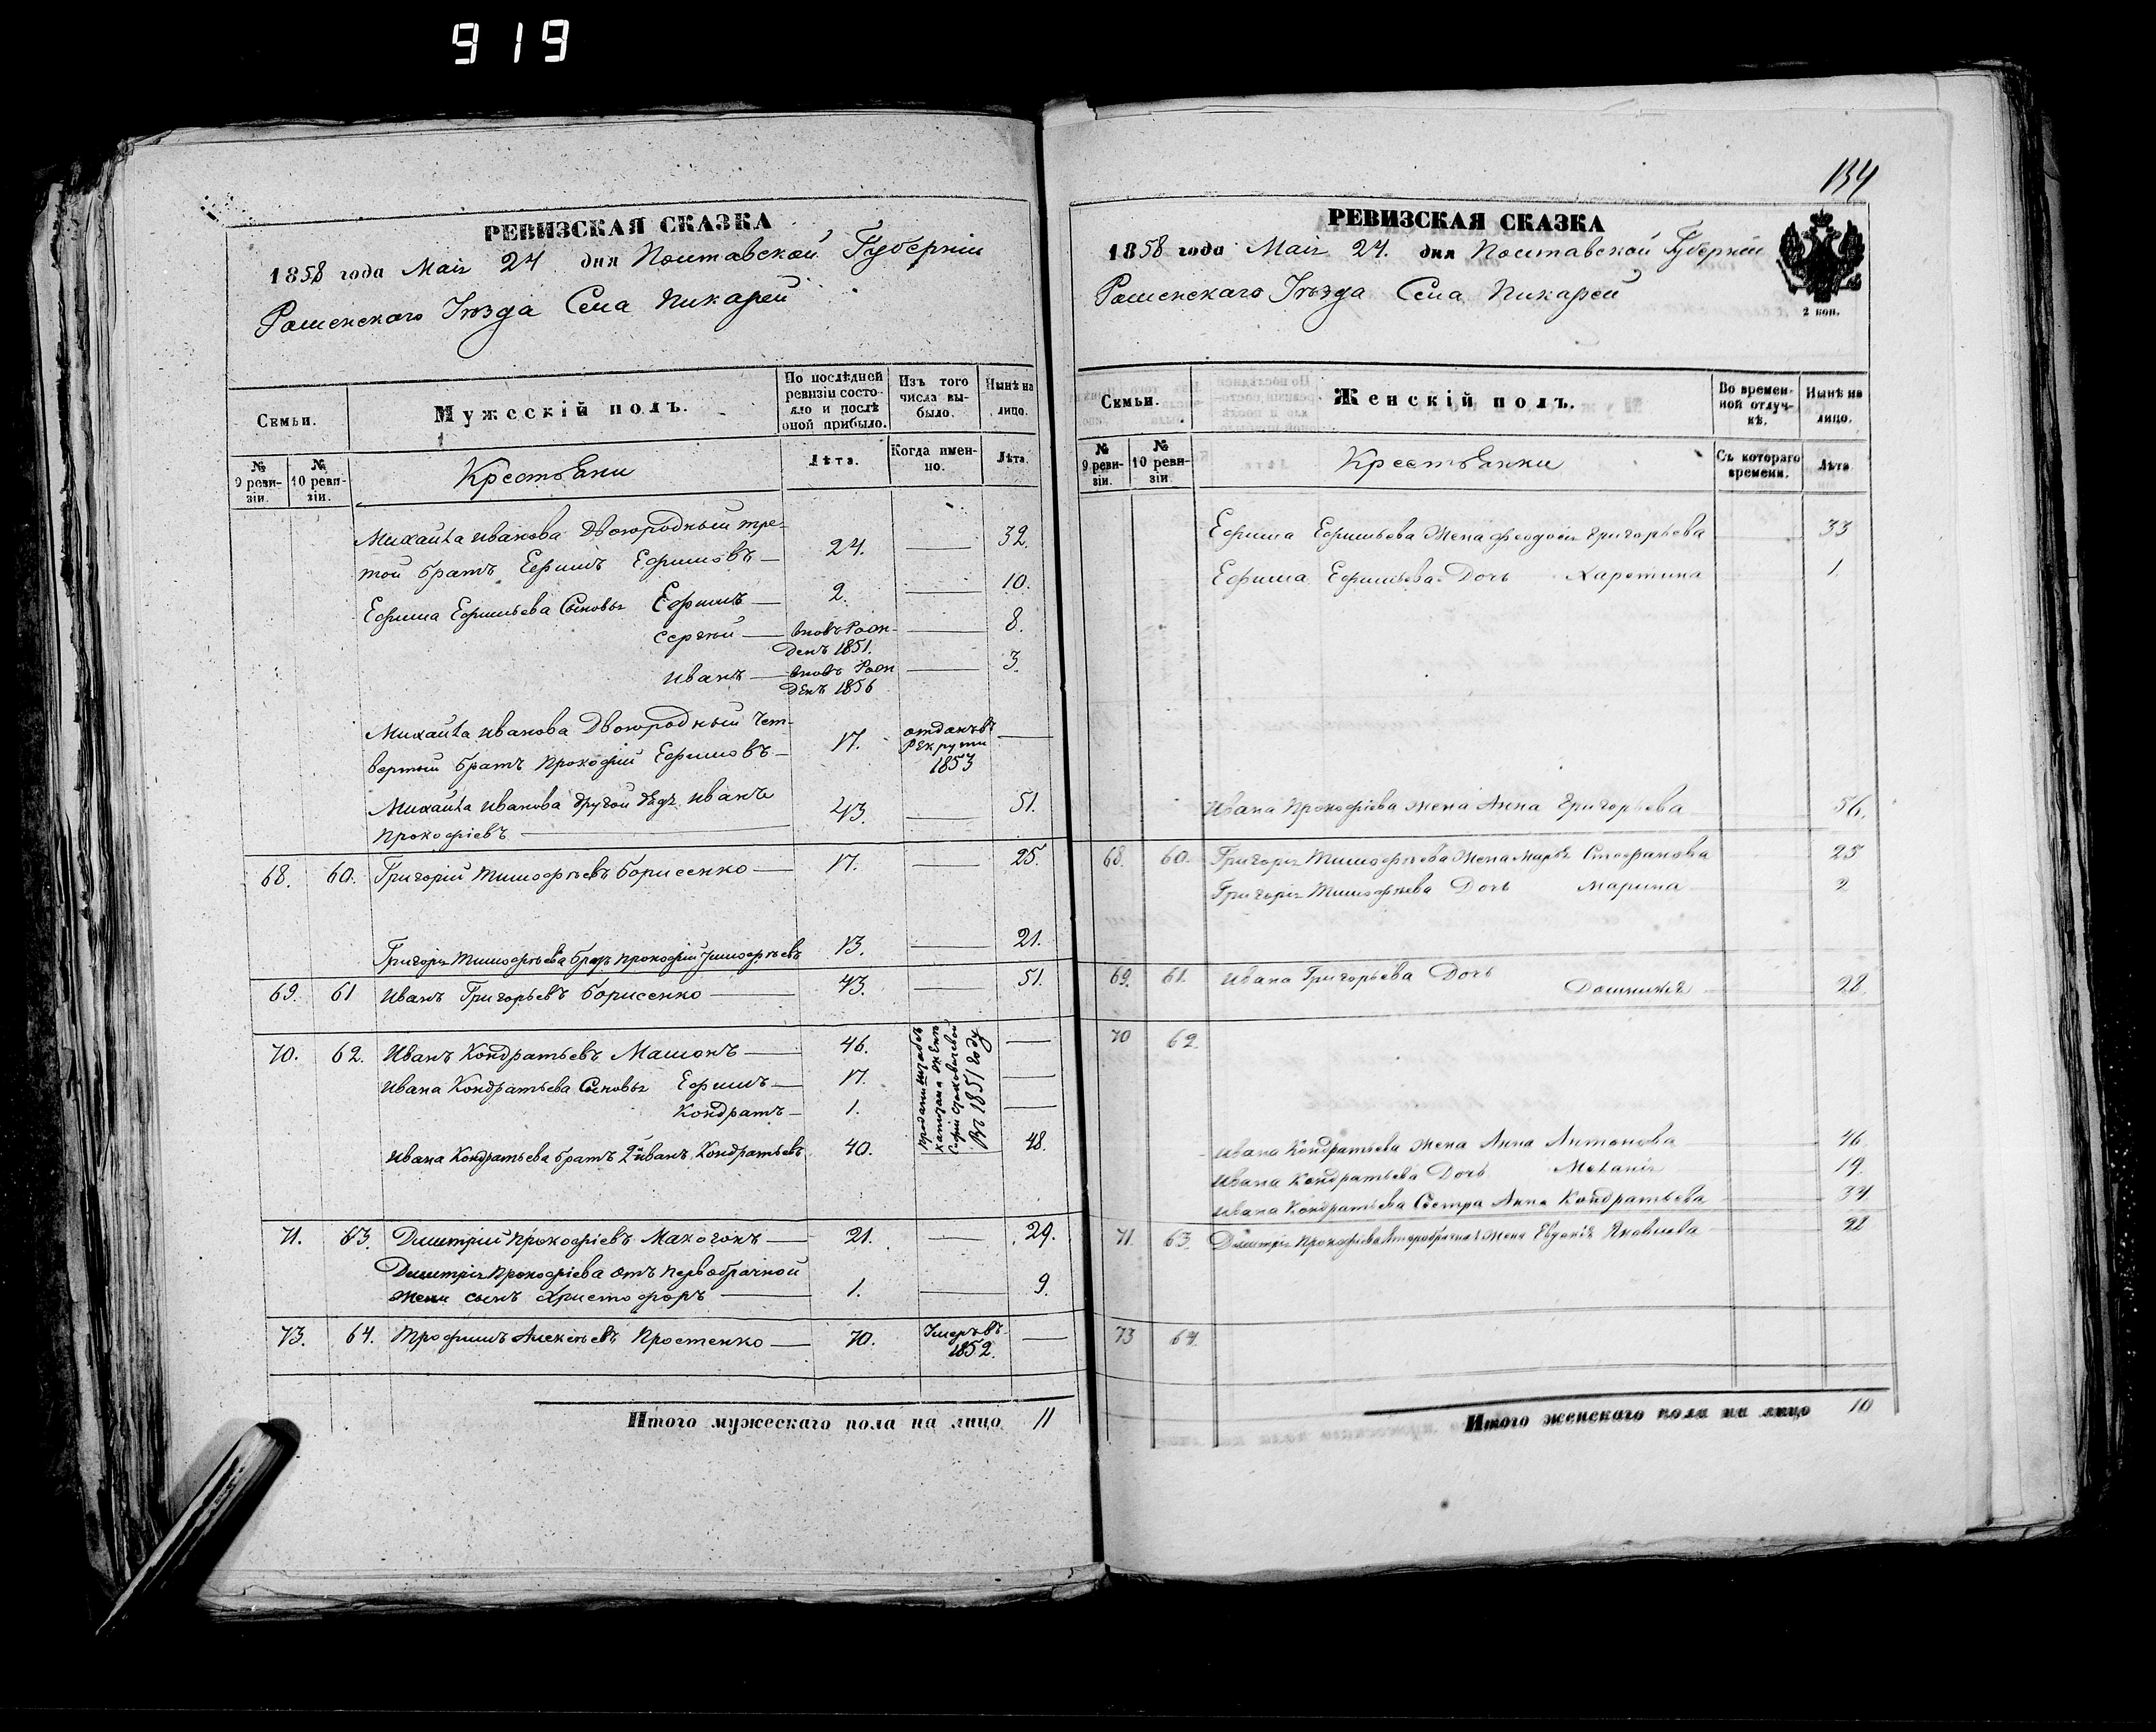 919
РЕВИЗСКАЯ СКАЗКА
1858 года Маія 24 дня Полтавской Губерніи
Роменскаго Уѣзда Села Пикарей
Семьи.
Мужескій полъ.
По послѣдней ревизіи состояло и послѣ оной прибыло.
Изъ того числа выбыло.
Нынѣ на лицо.
№ 9 ревизіи.
№ 10 ревизіи.
Крестьяни
Лѣта.
Когда именно.
Лѣта.
Михайла Иванова Двоюродный тре-
той братъ Ефимъ Ефимовъ — 24. — 32.
Ефима Ефимьева Сыновья Ефимъ — 2. — 10.
Сергѣй — вновь Рож-
денъ 1851. — 8.
Иванъ — вновь Рож
денъ 1856 — 3.
Михайла Иванова Двоюродный Чет-
вертый братъ Прокофій Ефимовъ — 17. отданъ въ Рекруты 1853 —
Михайла Иванова другой дядя Иванъ
Прокофіевъ — 43. — 51.
68. 60. Григорій Тимофѣевъ Борисенко — 17. — 25.
Григорія Тимофѣева братъ Прокофій Тимофѣевъ 13. — 21.
69. 61 Иванъ Григорьевъ Борисенко — 43. — 51.
70. 62. Иванъ Кондратьевъ Машонъ — 46. —
Ивана Кондратьева Сыновья Ефимъ — 17. —
Кондратъ — 1. —
въ 1851 году
Ивана Кондратьева братъ 2й Иванъ Кондратьевъ 40. — 48.
71. 63. Дмитрій Прокофіевъ Макогонъ — 21. — 29.
Дмитрія Прокофіева отъ первобрачной
жены сынъ Христофоръ — 1. — 9.
73. 64. Трофимъ Алексѣевъ Простенко — 70. Умеръ въ 1852. —
Итого мужескаго пола на лицо 11
134
РЕВИЗСКАЯ СКАЗКА
1858 года Маія 24. дня Полтавской Губерніи
Роменскаго Уѣзда Села Пикарей
2 коп.
Семьи.
Женскій полъ.
Во временной отлучкѣ.
Нынѣ на лицо.
№ 9 ревизіи.
№ 10 ревизіи.
Крестьянки
Съ котораго времени.
Лѣта
Ефима Ефимьева Жена Феодосія Григорьева — 33
Ефима Ефимьева Дочь Харетина — 1.
Ивана Прокофіева жена Анна Григорьева — 56.
68. 60. Григорія Тимофѣева жена Марья Стефанова — 25
Григорія Тимофѣева Дочь Марина — 2
69. 61. Ивана Григорьева Дочь
Домникія — 28
70 62.
Ивана Кондратьева жена Анна Антонова — 46
Ивана Кондратьева Дочь Меланія — 19.
Ивана Кондратьева Сестра Анна Кондратьева — 34
71 63. Дмитрія Прокофіева второбрачная жена Евдокія Яковлева — 28
73 64.
Итого женскаго пола на лицо 10